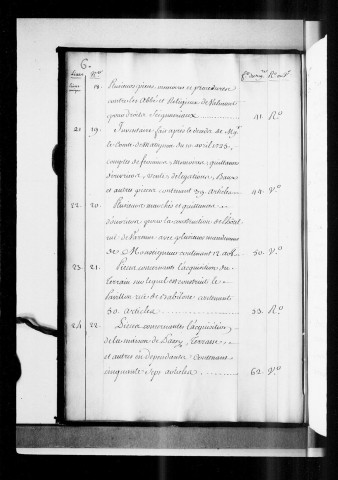 6.
Nos
18. Plusieurs pièces, mémoires et procédures
contre les Abbé et Religieux de
pour droits Seigneuriaux ........ 41. Ro
21 19. Inventaire fait après le décès de Mgr
le Comte de Matignon du 10 avril 1725,
comptes de Mémoires, quittances
d'ouvriers, délégations, Baux
et autres pièces contenant 39 Articles ........ 44. Vo
22. 20. Plusieurs marchés et quittances
d'ouvriers, pour la construction de l'hôtel
rue de Varenne avec plusieurs
de Monseigneur contenant 12 arts. ........ 50. Vo
23. 21. Pièces concernants l'acquisition du
terrain sur lequel est construit le
Pavillon rue de Babilone contenant
30. Articles ........ 53. Ro
24. 22. Pièces concernantes l'acquisition
de la maison de Passy, Terrasse
et autres en dépendantes Contenans
cinquante Sept articles ........ 62. Vo